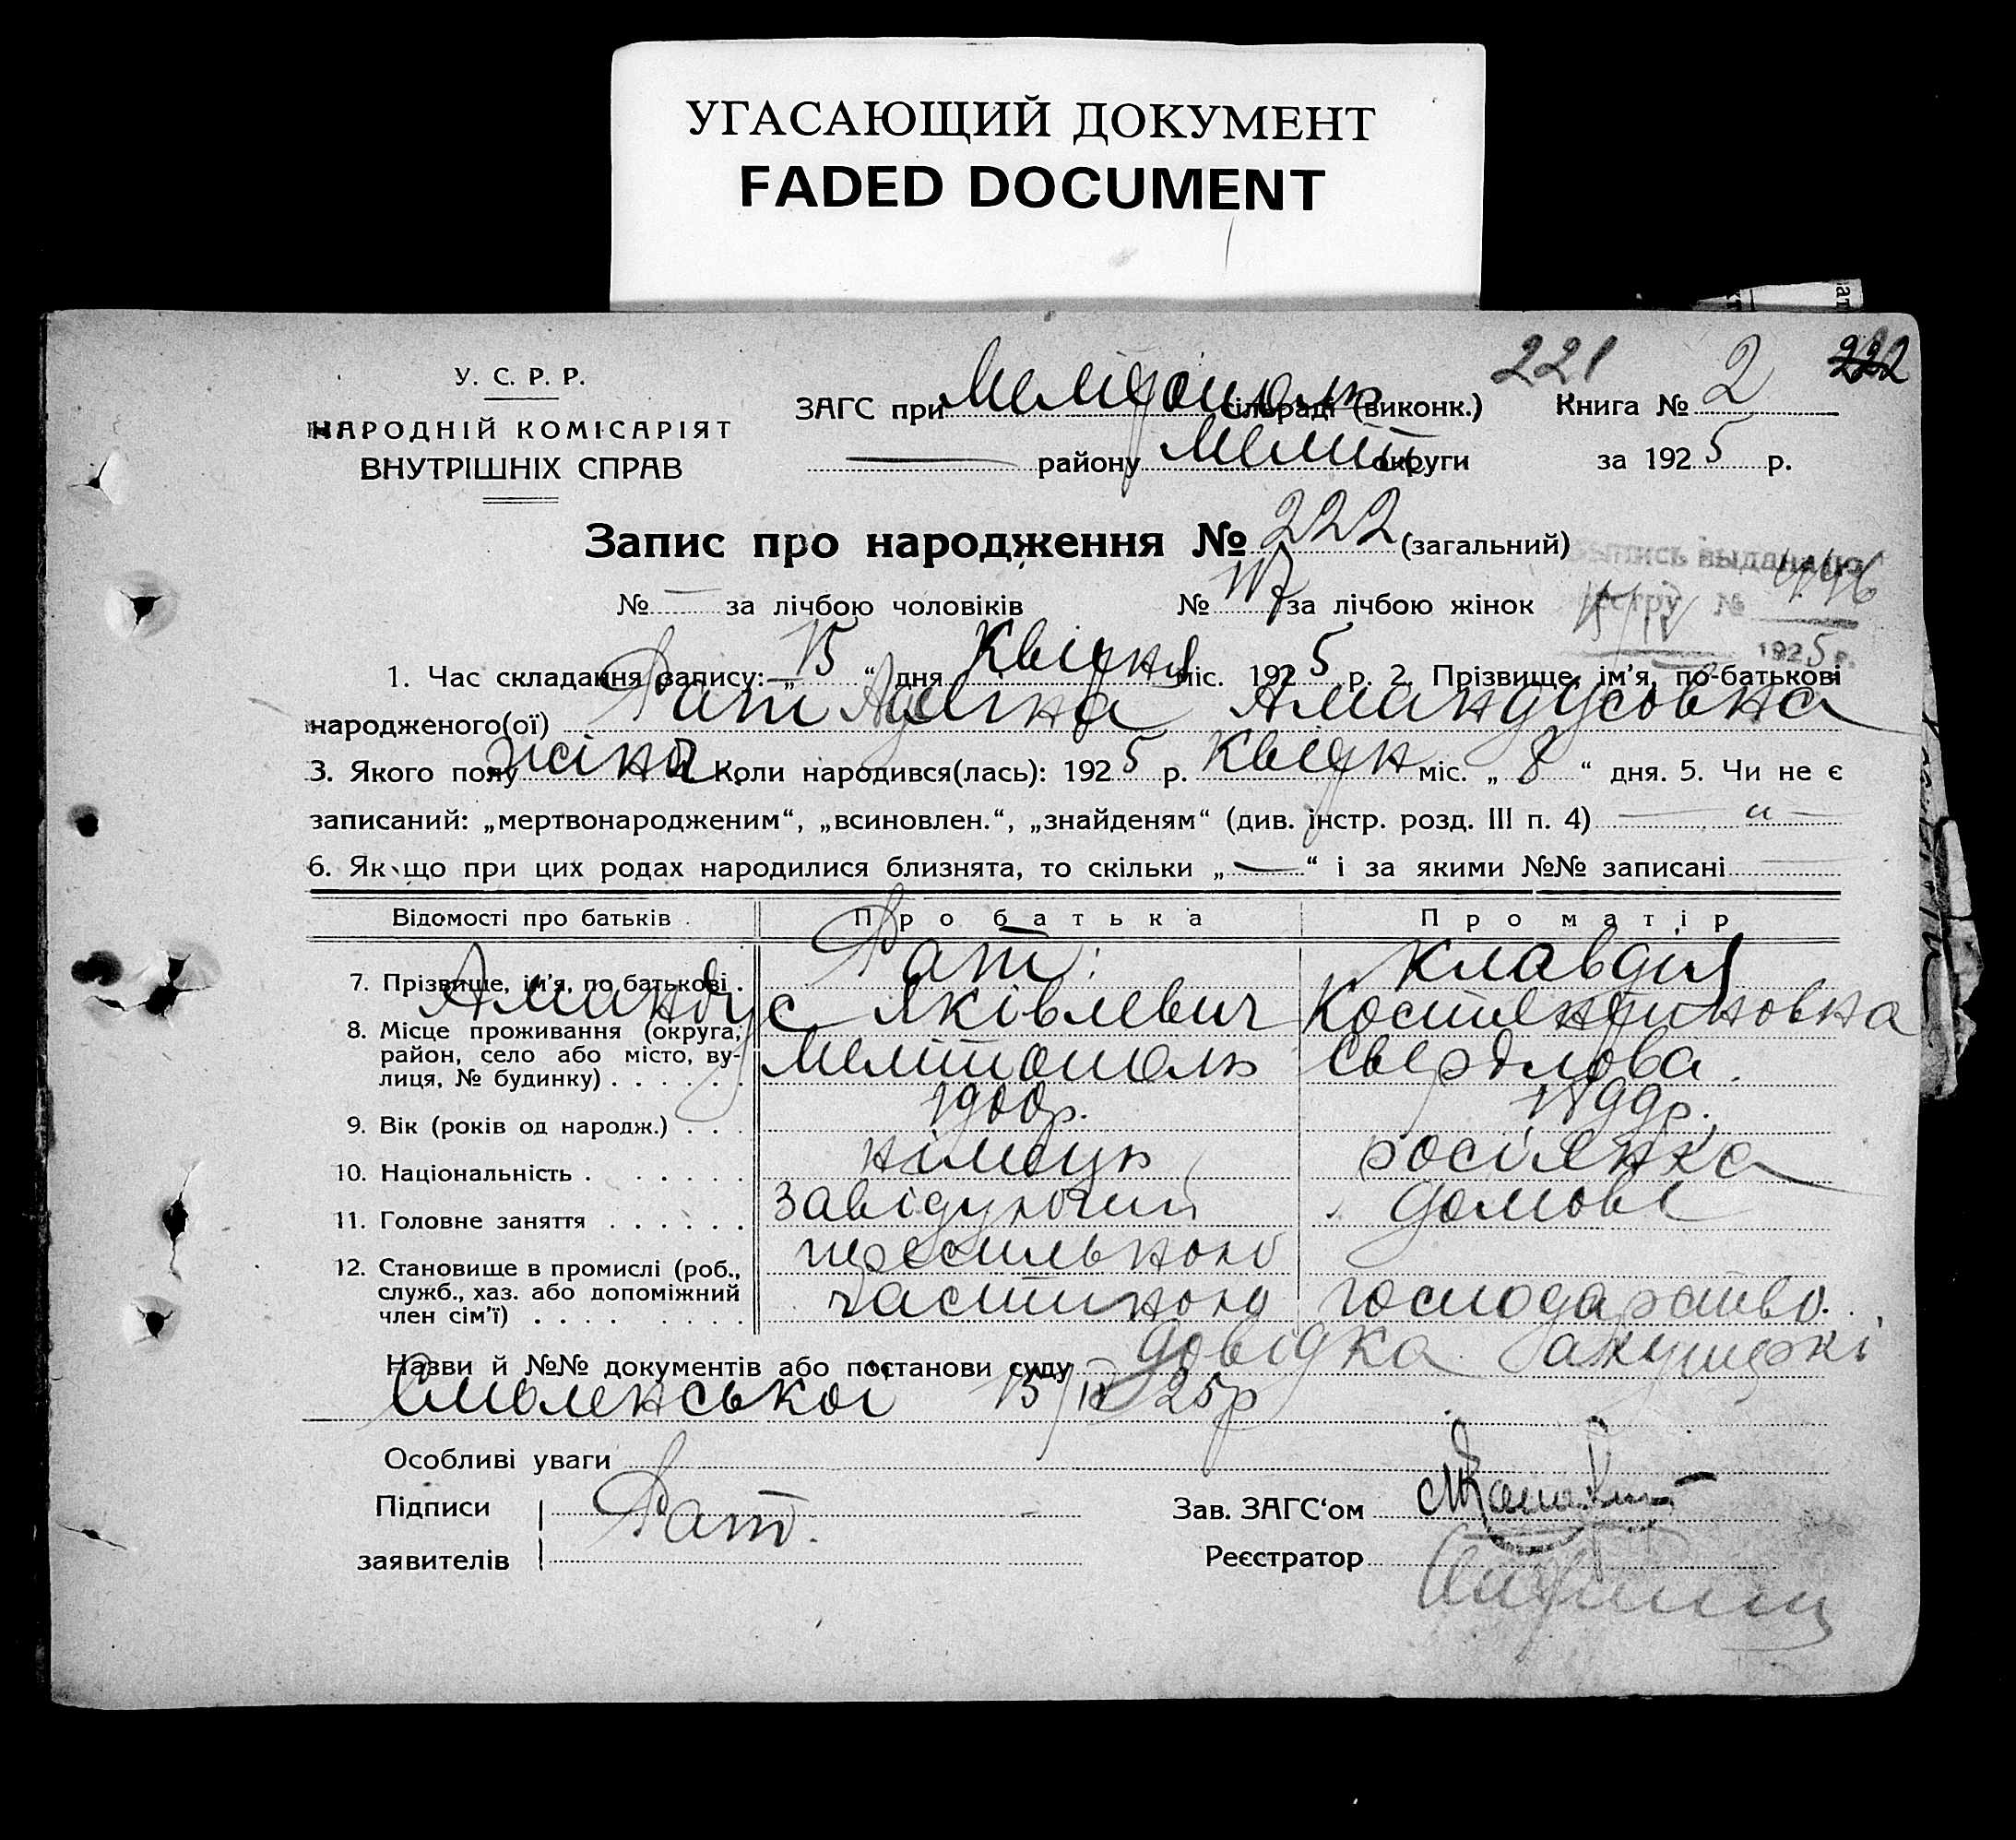 УГАСАЮЩИЙ ДОКУМЕНТ
FADED DOCUMENT
221
222
У. С. Р. Р.
НАРОДНІЙ КОМІСАРІЯТ
ВНУТРІШНІХ СПРАВ
ЗАГС при Мелітополь сільраді (виконк.) Книга № 2
— району Меліт округи за 1925 р.
Запис про народження № 222 (загальний)
№ — за лічбою чоловіків № 117 за лічбою жінок
выпись выдана
реестру № 446
15/IV 1925 г.
1. Час складання запису: „ 15 “ дня Квітня міс. 1925 р. 2. Прізвище, ім’я, по-батькові
народженого(ої) Рат Аліна Амандусовна
3. Якого полу жіноч. Коли народився(лась): 1925 р. Квітн міс. „ 8 “ дня. 5. Чи не є
записаний: „мертвонародженим“, „всиновлен.“, „знайденям“ (див. інстр. розд. III п. 4) — „ —
6. Як що при цих родах народилися близнята, то скільки „ — “ і за якими №№ записані
Відомості про батьків Про батька Про матір
7. Прізвище, ім’я, по батькові . Рат: Клавдія
Амандус Яківлевич Костянтиновна
8. Місце проживання (округа, район, село або місто, вулиця, № будинку) . . . . . . Мелітополь Свердлова.
9. Вік (років од народж.) . . . 1900р. 1899р.
10. Національність . . . . . . німець росіянка
11. Головне заняття . . . . . . Завідуючий домове
12. Становище в промислі (роб., служб., хаз. або допоміжний член сім’ї) . . . . . . . . частиною господарство.
Назви й №№ документів або постанови суду довідка акушерки
Смоленської 15/IV 25р
Особливі уваги
Підписи Рат. Зав. ЗАГС‘ом
заявителів Реєстратор